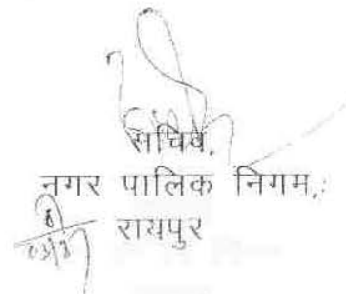 सचिव,
नगर पालिक निगम,
रायपुर